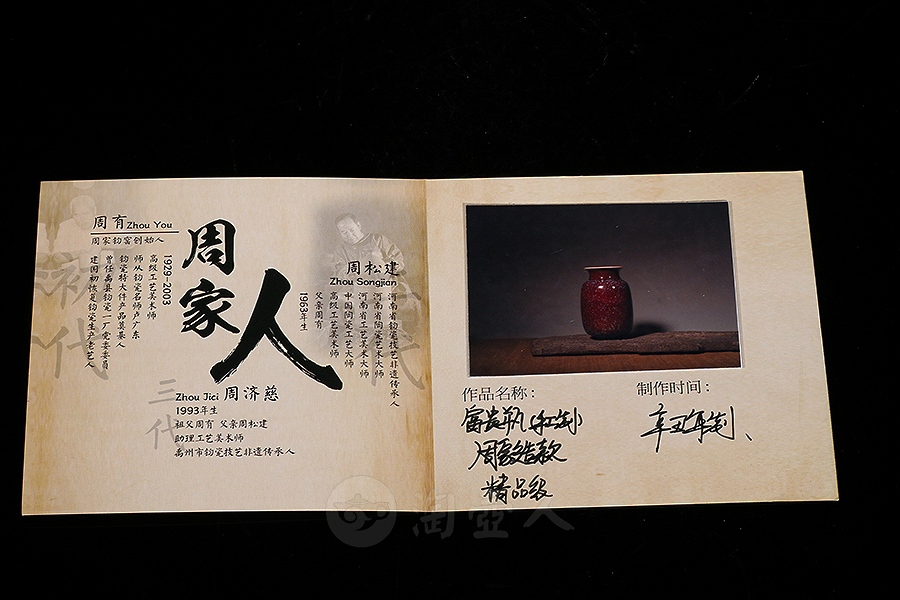 周有 Zhou You
周家钧窑创始人
1929-2003
高级工艺美术师
师从钧瓷名师卢广东
钧瓷特大件产品奠基人
曾任禹县钧瓷一厂党委委员
建国初恢复钧瓷生产老艺人
初代
周家人
周松建
Zhou Songjian
1963年生
父亲周有
高级工艺美术师
中国陶瓷工艺大师
河南省工艺美术大师
河南省陶瓷艺术大师
河南省钧瓷技艺非遗传承人
三代
Zhou Jici 周济慈
1993年生
祖父周有 父亲周松建
助理工艺美术师
禹州市钧瓷技艺非遗传承人
作品名称：
富贵瓶
周家造款
精品级
制作时间：
辛丑年制、